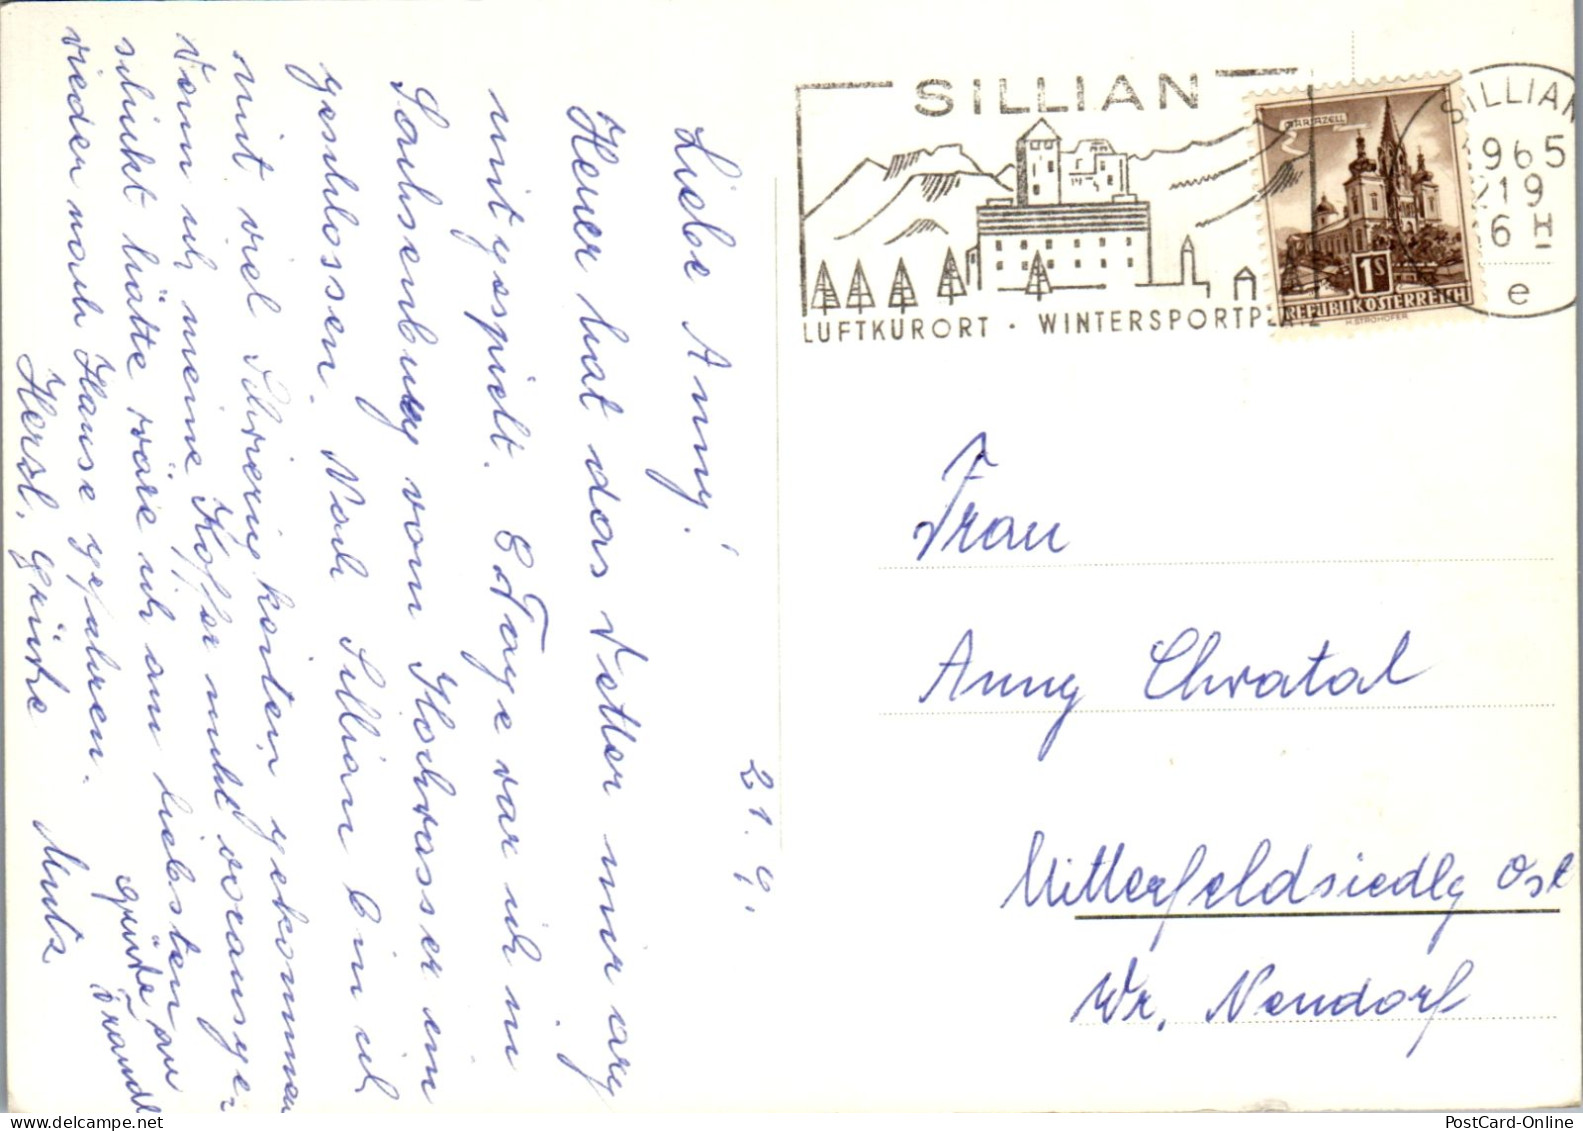 21. 9.
Liebe Anny!
Heuer hat das Wetter mir arg
mitgespielt. 8 Tage war ich in
Sachsenburg vom Hochwasser ein
geschlossen. Nach Sillian bin ich
mit viel Schwierigkeiten gekommen
Wenn ich meine Koffer nicht vorausge-
schickt hätte wäre ich am liebsten
wieder nach Hause gefahren.
Herzl. Grüße Mutz
Grüße an
Traudl
SILLIAN
LUFTKURORT · WINTERSPORTPLATZ
MARIAZELL
1S
REPUBLIK ÖSTERREICH
H. STROHOFER
SILLIAN
1965
219
16 H
e
Frau
Anny Chvatal
Mitterfeldsiedlg Ost
Wr. Neudorf
PostCard-Online